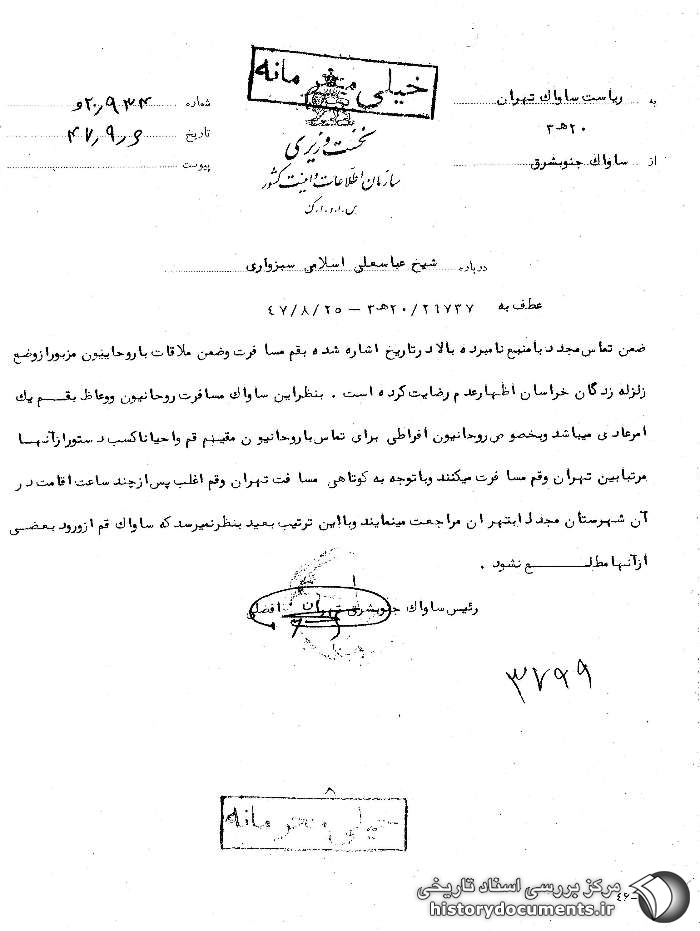 خیلی محرمانه
به ریاست ساواک تهران
۲۰ ه‍ ۳
از ساواک جنوبشرق
نخست وزیری
سازمان اطلاعات و امنیت کشور
س.ا.و.ا.ک
شماره
تاریخ ۴۷/۹/۶
پیوست
درباره شیخ عباسعلی اسلامی سبزواری
عطف به ۲۰/۲۶۷۳۷ه‍ ۳ - ۴۷/۸/۲۵
ضمن تماس مجدد با منبع نامبرده بالا در تاریخ اشاره شده بقم مسافرت وضمن ملاقات با روحانیون مزبور از وضع
زلزله زدگان خراسان اظهار عدم رضایت کرده است . بنظر این ساواک مسافرت روحانیون ووعاظ بقم یک
امر عادی میباشد وبخصوص روحانیون افراطی برای تماس با روحانیون مقیم قم واحیانا کسب دستور از آنها
مرتبا بین تهران وقم مسافرت میکنند وبا توجه به کوتاهی مسافت تهران وقم اغلب پس از چند ساعت اقامت در
آن شهرستان مجددا بتهران مراجعت مینمایند وبا این ترتیب بعید بنظر نمیرسد که ساواک قم از ورود بعضی
از آنها مطلع نشود .
رئیس ساواک جنوبشرق تهران افضلی
۳۷۹۹
۸
خیلی محرمانه
۴۶-
مرکز بررسی اسناد تاریخی
historydocuments.ir